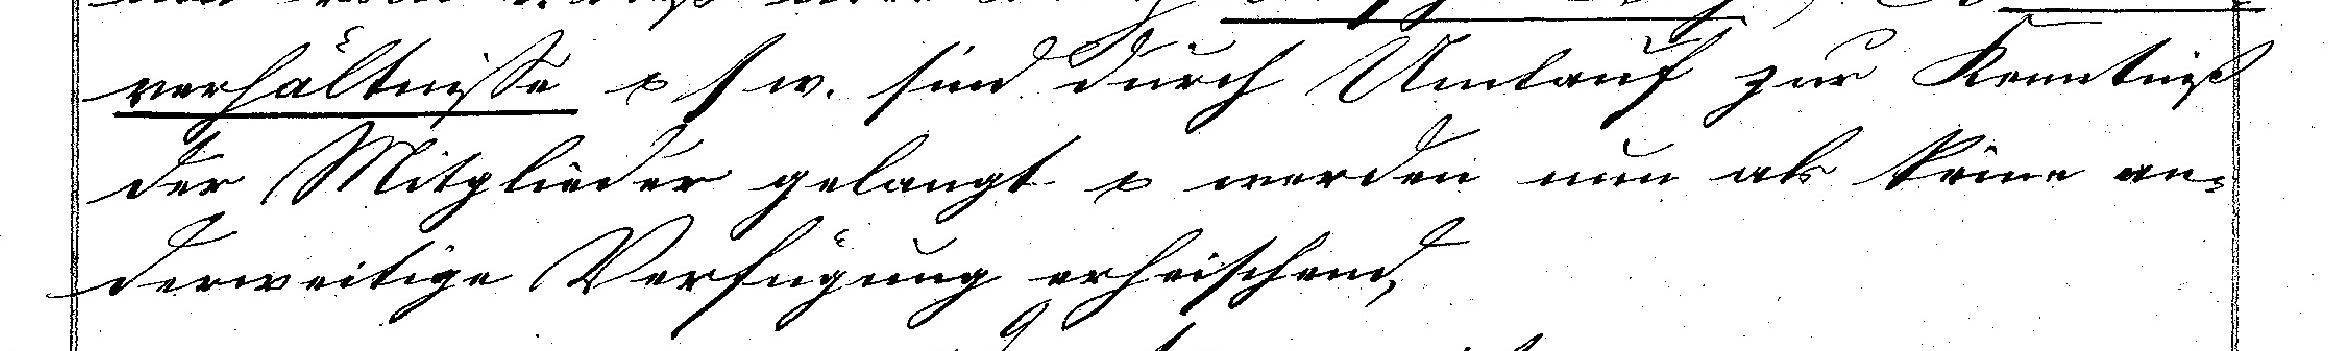 verhältnisse & s w. sind durch Umlauf zur Kenntniß
der Mitglieder gelangt & werden nun als keine an=
derweitige Verfügung erheischend,